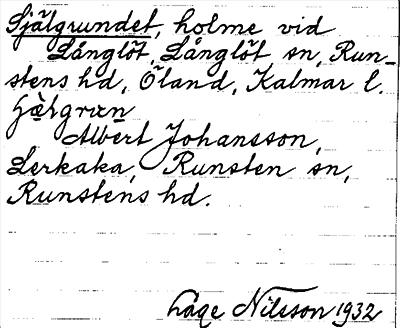 Själgrundet, holme vid
Långlöt, Långlöt sn, Run-
stens hd, Öland, Kalmar l.
Albert Johansson,
Lerkaka, Runsten sn,
Runstens hd.
Låge Nilsson 1932